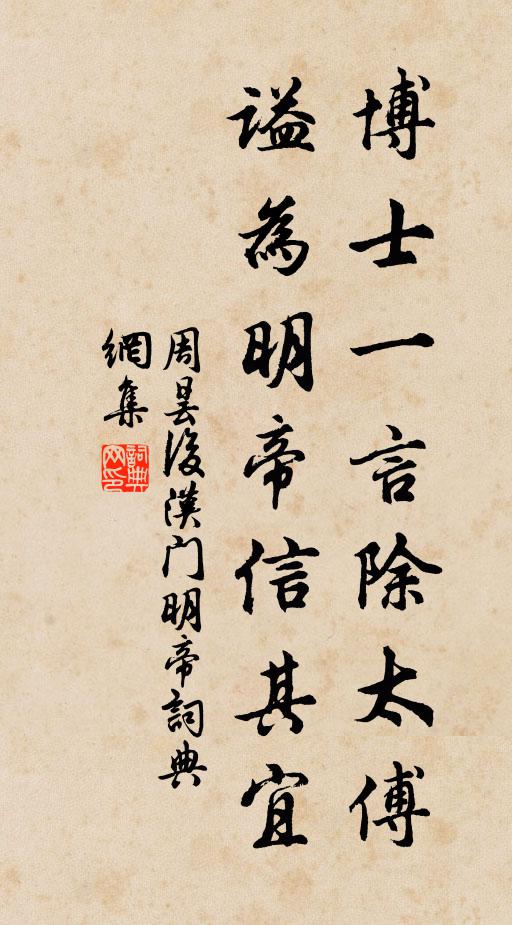 博士一言除太傅
谥為明帝信其宜
周昙後漢门明帝詞典
網集
詞典
网印